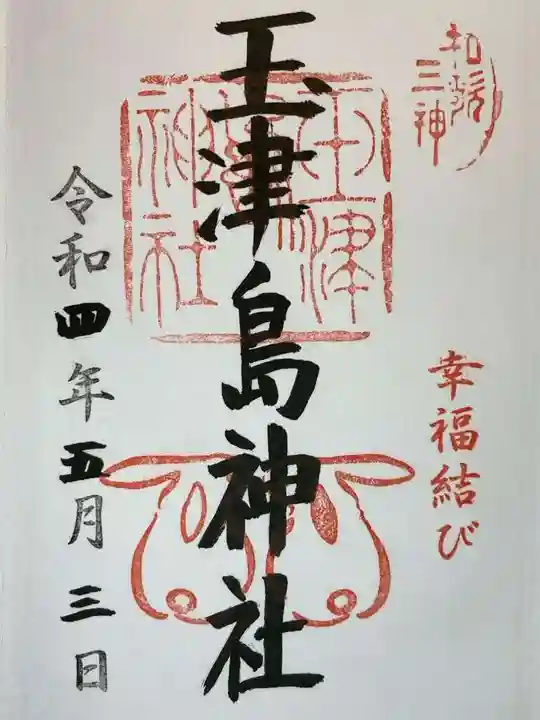 和歌
三神
幸福結び
玉津
島
神社
玉津島神社
令和四年五月三日